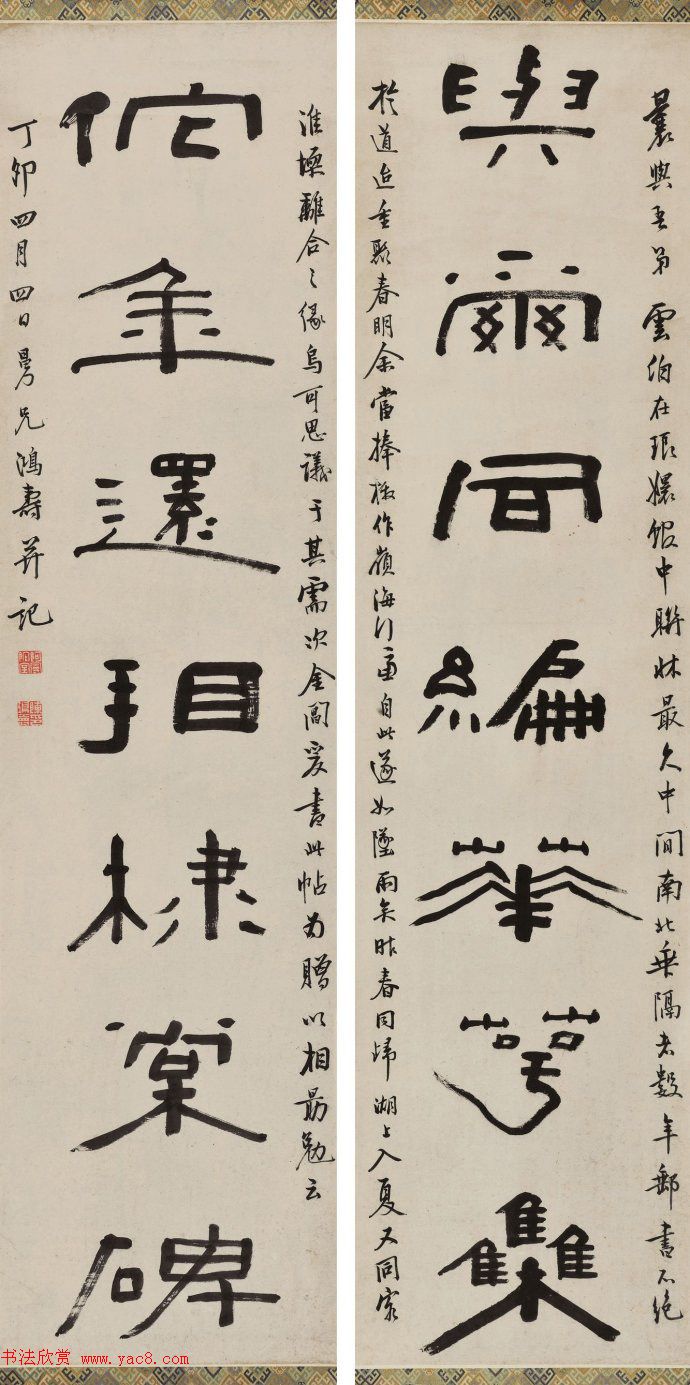 曩與吾弟雲伯在琅嬛館中聯牀最久中間南北乖隔者數年郵書不絕
與爾同編華萼集
於道迨重聚春明余當捧檄作嶺海行自此遂如墜雨矣昨春同歸湖上入夏又同客
淮壖離合之緣烏可思議于其需次金閶爰書此帖為贈以相勗勉云
佗金還棣棠碑
丁卯四月四日曼兄鴻壽并記
书法欣赏 www.yac8.com